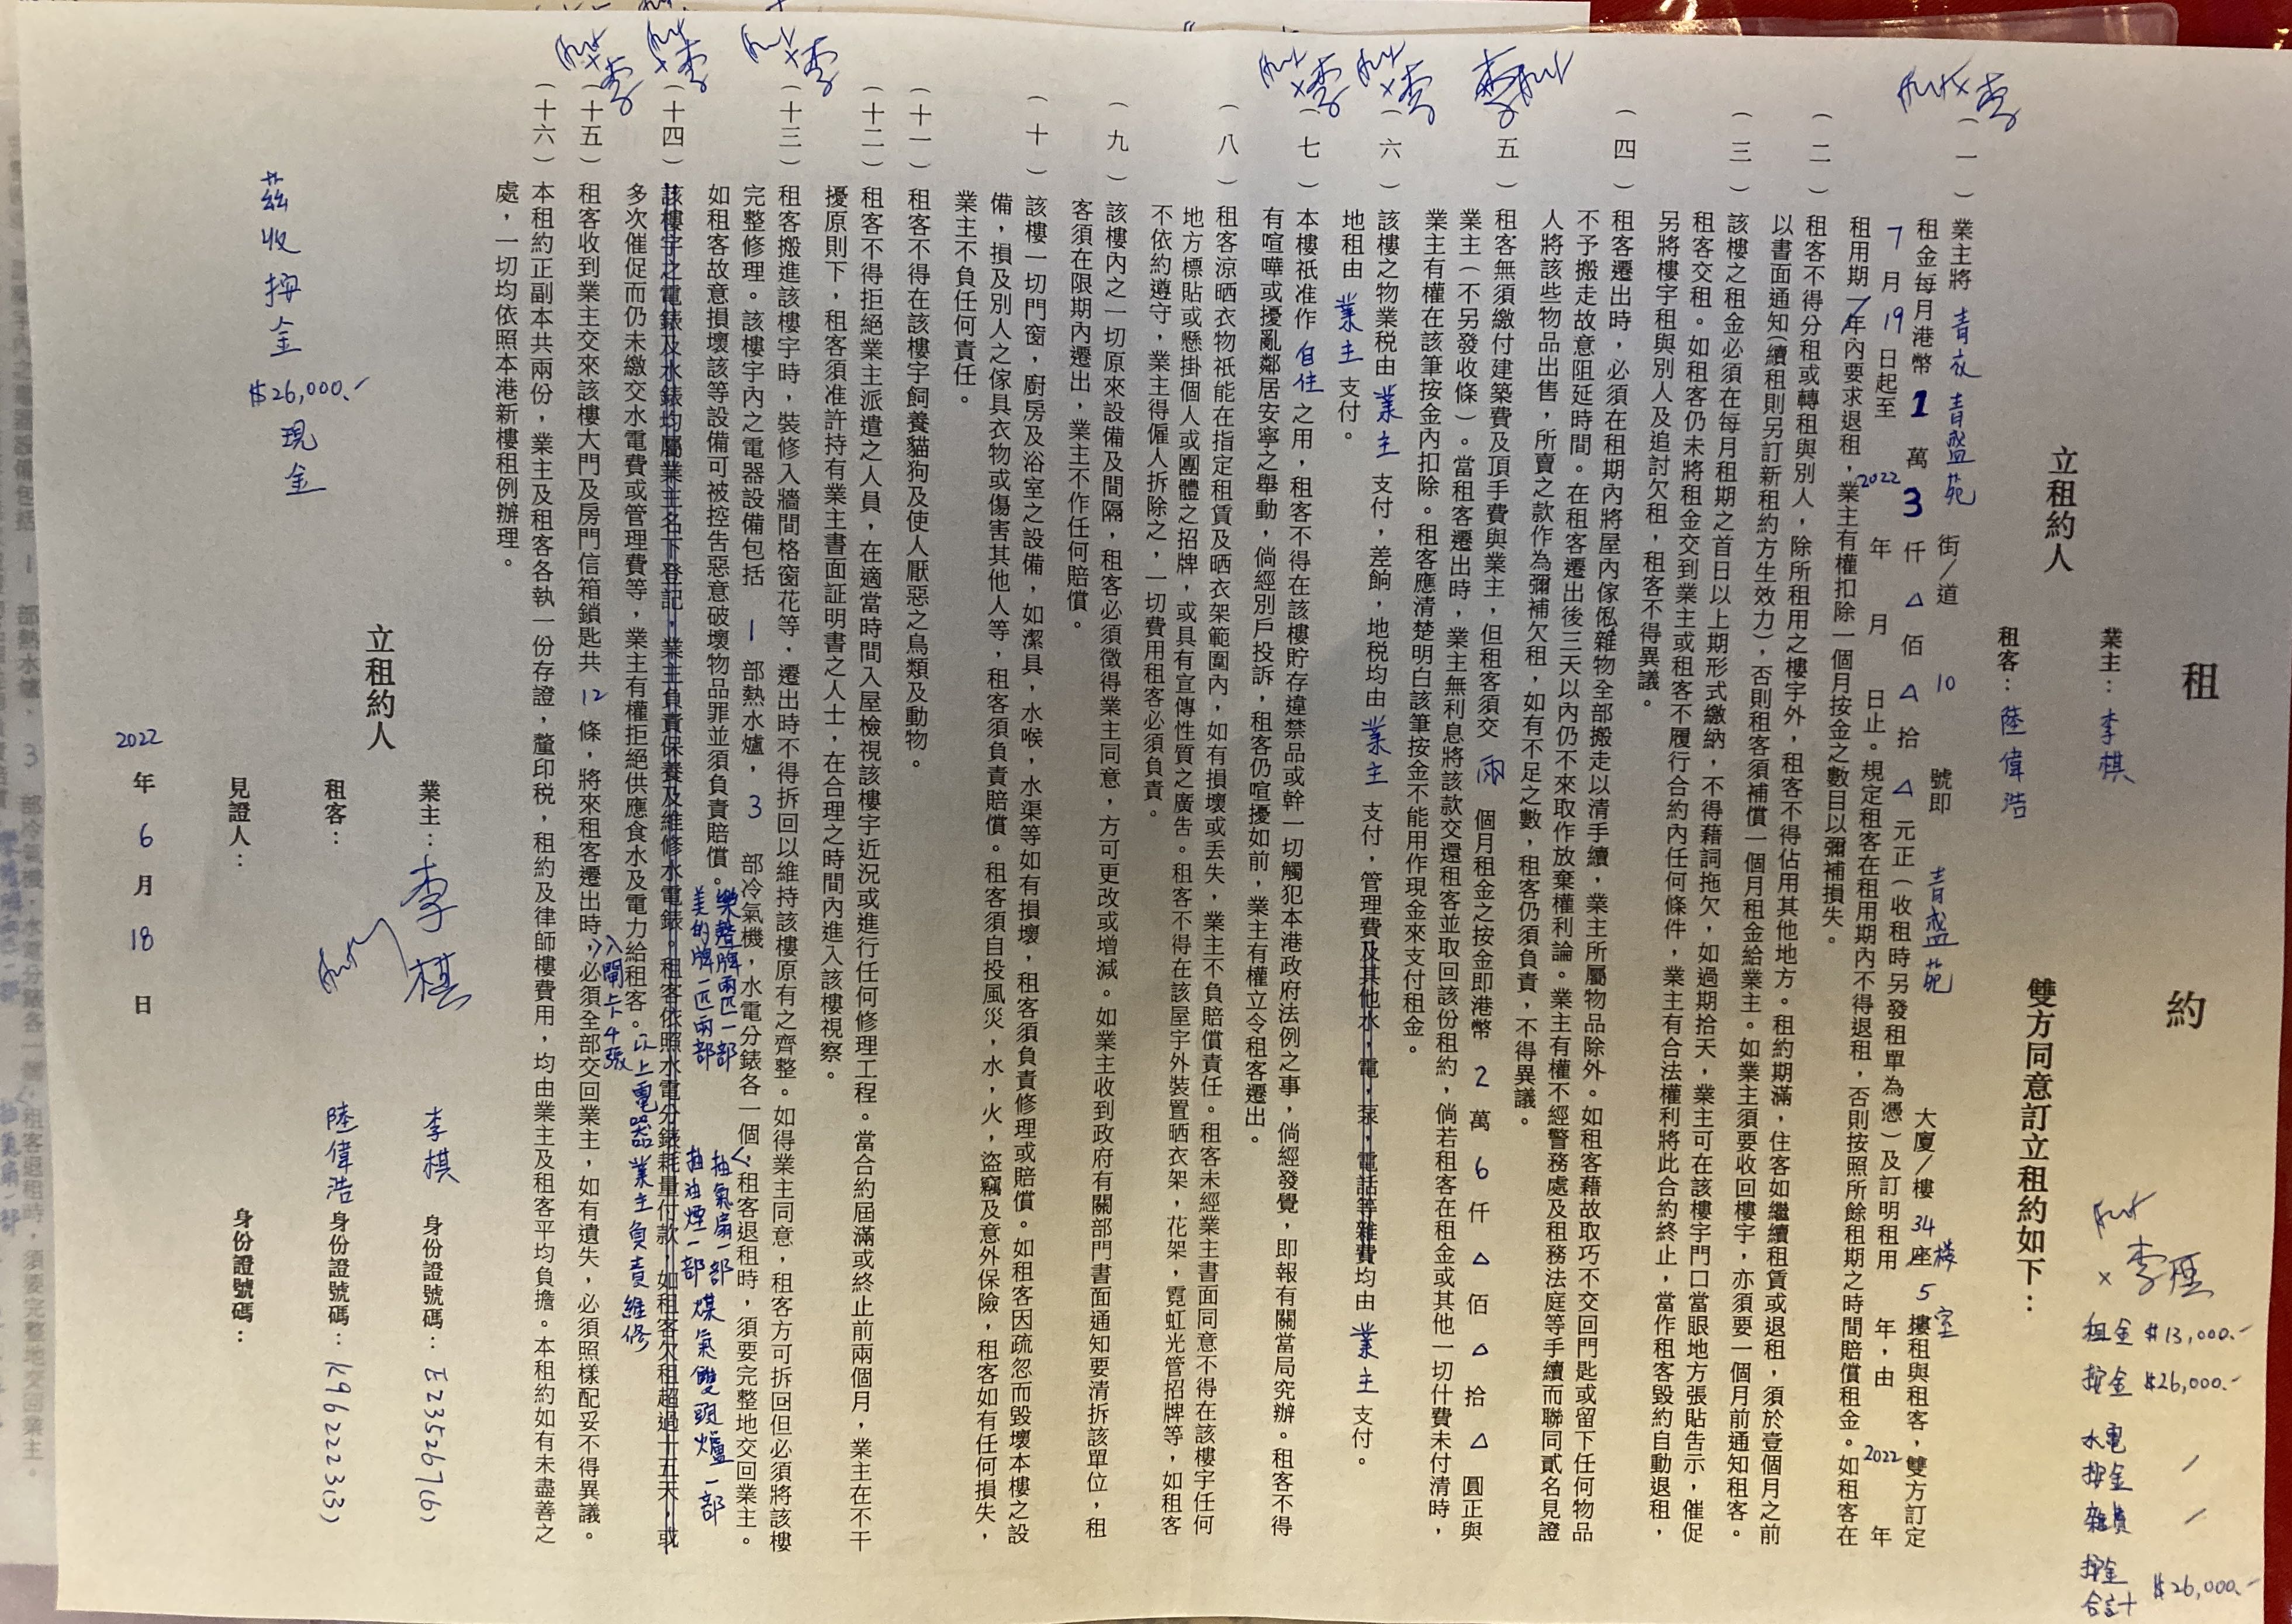 租約
業主：李棋
租客：陸偉浩
立租約人
雙方同意訂立租約如下：
租金 $13,000.-
按金 $26,000.-
水電按金 /
雜費 /
按金合計 $26,000.-
（一）業主將 青衣青盛苑 街/道 10 號即 青盛苑 大廈/樓 34樓座 5室 樓租與租客，雙方訂定
租金每月港幣 1 萬 3 仟 △ 佰 △ 拾 △ 元正（收租時另發租單為憑）及訂明租用 年，由 2022 年
7 月 19 日起至 2022 年 月 日止。規定租客在租用期內不得退租，否則按照所餘租期之時間賠償租金。如租客在
租用期 年內要求退租，業主有權扣除一個月按金之數目以彌補損失。
（二）租客不得分租或轉租與別人，除所租用之樓宇外，租客不得佔用其他地方。租約期滿，住客如繼續租賃或退租，須於壹個月之前
以書面通知（續租則另訂新租約方生效力），否則租客須補償一個月租金給業主。如業主須要收回樓宇，亦須要一個月前通知租客。
（三）該樓之租金必須在每月租期之首日以上期形式繳納，不得藉詞拖欠，如過期拾天，業主可在該樓宇門口當眼地方張貼告示，催促
租客交租。如租客仍未將租金交到業主或租客不履行合約內任何條件，業主有合法權利將此合約終止，當作租客毀約自動退租，
另將樓宇租與別人及追討欠租，租客不得異議。
（四）租客遷出時，必須在租期內將屋內傢俬雜物全部搬走以清手續，業主所屬物品除外。如租客藉故取巧不交回門匙或留下任何物品
不予搬走故意阻延時間。在租客遷出後三天以內仍不來取作放棄權利論。業主有權不經警務處及租務法庭等手續而聯同貳名見證
人將該些物品出售，所賣之款作為彌補欠租，如有不足之數，租客仍須負責，不得異議。
（五）租客無須繳付建築費及頂手費與業主，但租客須交 兩 個月租金之按金即港幣 2 萬 6 仟 △ 佰 △ 拾 △ 圓正與
業主（不另發收條）。當租客遷出時，業主無利息將該款交還租客並取回該份租約，倘若租客在租金或其他一切什費未付清時，
業主有權在該筆按金內扣除。租客應清楚明白該筆按金不能用作現金來支付租金。
（六）該樓之物業稅由 業主 支付，差餉，地稅均由 業主 支付，管理費及其他水，電，泵，電話等雜費均由 業主 支付。
地租由 業主 支付。
（七）本樓祇准作 自住 之用，租客不得在該樓貯存違禁品或幹一切觸犯本港政府法例之事，倘經發覺，即報有關當局究辦。租客不得
有喧嘩或擾亂鄰居安寧之舉動，倘經別戶投訴，租客仍喧擾如前，業主有權立令租客遷出。
（八）租客涼晒衣物祇能在指定租賃及晒衣架範圍內，如有損壞或丟失，業主不負賠償責任。租客未經業主書面同意不得在該樓宇任何
地方標貼或懸掛個人或團體之招牌，或具有宣傳性質之廣告。租客不得在該屋宇外裝置晒衣架，花架，霓虹光管招牌等，如租客
不依約遵守，業主得僱人拆除之，一切費用租客必須負責。
（九）該樓內之一切原來設備及間隔，租客必須徵得業主同意，方可更改或增減。如業主收到政府有關部門書面通知要清拆該單位，租
客須在限期內遷出，業主不作任何賠償。
（十）該樓一切門窗，廚房及浴室之設備，如潔具，水喉，水渠等如有損壞，租客須負責修理或賠償。如租客因疏忽而毀壞本樓之設
備，損及別人之傢具衣物或傷害其他人等，租客須負責賠償。租客須自投風災，水，火，盜竊及意外保險，租客如有任何損失，
業主不負任何責任。
（十一）租客不得在該樓宇飼養貓狗及使人厭惡之鳥類及動物。
（十二）租客不得拒絕業主派遣之人員，在適當時間入屋檢視該樓宇近況或進行任何修理工程。當合約屆滿或終止前兩個月，業主在不干
擾原則下，租客須准許持有業主書面証明書之人士，在合理之時間內進入該樓視察。
（十三）租客搬進該樓宇時，裝修入牆間格窗花等，遷出時不得拆回以維持該樓原有之齊整。如得業主同意，租客方可拆回但必須將該樓
完整修理。該樓宇內之電器設備包括 1 部熱水爐，3 部冷氣機，水電分錶各一個，租客退租時，須要完整地交回業主。
如租客故意損壞該等設備可被控告惡意破壞物品罪並須負責賠償。
樂聲牌兩匹一部
美的牌一匹兩部
抽氣扇一部
抽油煙一部 煤氣雙頭爐一部
（十四）該樓宇之電錶及水錶均屬業主名下登記，業主負責保養及維修水電錶。租客依照水電分錶耗量付款，如租客欠租超過十五天，或
多次催促而仍未繳交水電費或管理費等，業主有權拒絕供應食水及電力給租客。以上電器業主負責維修
（十五）租客收到業主交來該樓大門及房門信箱鎖匙共 12 條，將來租客遷出時，必須全部交回業主，如有遺失，必須照樣配妥不得異議。
入閘卡4張
（十六）本租約正副本共兩份，業主及租客各執一份存證，釐印稅，租約及律師樓費用，均由業主及租客平均負擔。本租約如有未盡善之
處，一切均依照本港新樓租例辦理。
茲收按金 $26,000.- 現金
立租約人
業主：李棋 李棋 身份證號碼：E235267(6)
租客： 陸偉浩 身份證號碼：K962223(3)
見證人： 身份證號碼：
2022 年 6 月 18 日